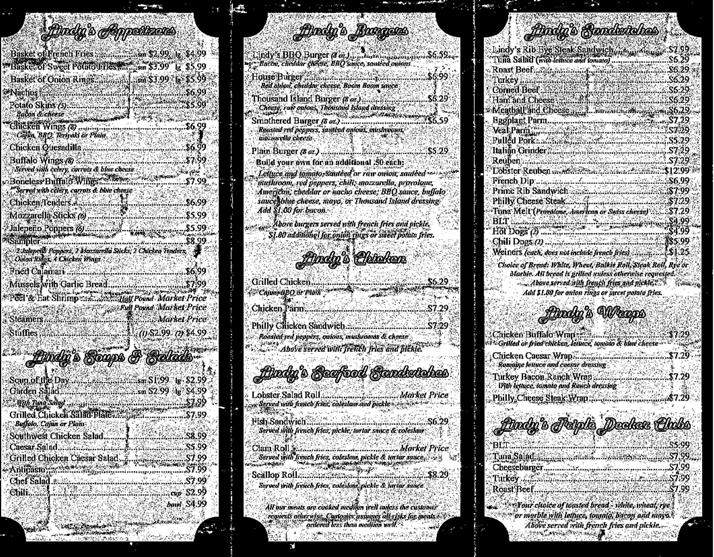 Lindy's Appetizers
Basket of French Fries sm $2.99 lg $4.99
Basket of Sweet Potato Fries sm $3.99 lg $5.99
Basket of Onion Rings sm $3.99 lg $5.99
Nachos $6.99
Potato Skins (5) $5.99
Bacon & cheese
Chicken Wings (8) $6.99
Cajun, BBQ, Teriyaki or Plain
Chicken Quesadilla $6.99
Buffalo Wings (8) $7.99
Served with celery, carrots & blue cheese
Boneless Buffalo Wings $7.99
Served with celery, carrots & blue cheese
Chicken Tenders $6.99
Mozzarella Sticks (6) $5.99
Jalapeno Poppers (6) $5.99
Sampler $8.99
2 Jalapeno Poppers, 2 Mozzarella Sticks, 2 Chicken Tenders,
Onion Rings, 4 Chicken Wings
Fried Calamari $6.99
Mussels with Garlic Bread $7.99
Peel & Eat Shrimp Half Pound Market Price
Full Pound Market Price
Steamers Market Price
Stuffies (1) $2.99 (2) $4.99
Lindy's Soups & Salads
Soup of the Day sm $1.99 lg $2.99
Garden Salad sm $2.99 lg $4.99
$7.99
Grilled Chicken Salad Plate $7.99
Buffalo, Cajun or Plain
Southwest Chicken Salad $8.99
Caesar Salad $5.99
Grilled Chicken Caesar Salad $7.99
Antipasto $7.99
Chef Salad $7.99
Chili cup $2.99
bowl $4.99
Lindy's Burgers
Lindy's BBQ Burger (8 oz.) $6.59
Bacon, cheddar cheese, BBQ sauce, sautéed onions
House Burger $6.99
Red onion, cheddar cheese, Boom Boom sauce
Thousand Island Burger (8 oz.) $6.29
Cheese, raw onions, Thousand Island dressing
Smothered Burger (8 oz.) $6.59
Roasted red peppers, sautéed onions, mushrooms,
mozzarella cheese
Plain Burger (8 oz.) $5.29
Build your own for an additional .50 each:
Lettuce and tomato, Sautéed or raw onion, sautéed
mushroom, red peppers, chili; mozzarella, provolone,
American, cheddar or nacho cheese; BBQ sauce, buffalo
sauce, blue cheese, mayo, or Thousand Island Dressing.
Add $1.00 for bacon.
Above burgers served with french fries and pickle.
$1.00 additional for onion rings or sweet potato fries.
Lindy's Chicken
Grilled Chicken $6.29
Cajun, BBQ or Plain
Chicken Parm $7.29
Philly Chicken Sandwich $7.29
Roasted red peppers, onions, mushrooms & cheese
Above served with french fries and pickle.
Lindy's Seafood Sandwiches
Lobster Salad Roll Market Price
Served with french fries, coleslaw and pickle
Fish Sandwich $6.29
Served with french fries, pickle, tartar sauce & coleslaw
Clam Roll Market Price
Served with french fries, coleslaw, pickle & tartar sauce
Scallop Roll $8.29
Served with french fries, coleslaw, pickle & tartar sauce
All our meats are cooked medium well unless the customer
requests otherwise. Customer assumes all risks for meats
ordered less than medium well.
Lindy's Sandwiches
Lindy's Rib Eye Steak Sandwich $7.99
Tuna Salad (with lettuce and tomato) $6.29
Roast Beef $6.29
Turkey $6.29
Corned Beef $6.29
Ham and Cheese $6.29
Meatball and Cheese $6.29
Eggplant Parm $7.29
Veal Parm $7.29
Pulled Pork $5.29
Italian Grinder $7.29
Reuben $7.29
Lobster Reuben $12.99
French Dip $6.99
Prime Rib Sandwich $7.99
Philly Cheese Steak $7.29
Tuna Melt (Provolone, American or Swiss cheese) $7.29
BLT $4.99
Hot Dogs (2) $4.99
Chili Dogs (2) $5.99
Weiners (each, does not include french fries) $1.25
Choice of Bread: White, Wheat, Bulkie Roll, Steak Roll, Rye or
Marble. All bread is grilled unless otherwise requested.
Above served with french fries and pickle.
Add $1.00 for onion rings or sweet potato fries.
Lindy's Wraps
Chicken Buffalo Wrap $7.29
Grilled or fried chicken, lettuce, tomato & blue cheese
Chicken Caesar Wrap $7.29
Romaine lettuce and Caesar dressing
Turkey Bacon Ranch Wrap $7.29
With lettuce, tomato and Ranch dressing
Philly Cheese Steak Wrap $7.29
Lindy's Triple Decker Clubs
BLT $5.99
Tuna Salad $7.99
Cheeseburger $7.99
Turkey $7.99
Roast Beef $7.99
Your choice of toasted bread - white, wheat, rye
or marble with lettuce, tomato, bacon and mayo.
Above served with french fries and pickle.